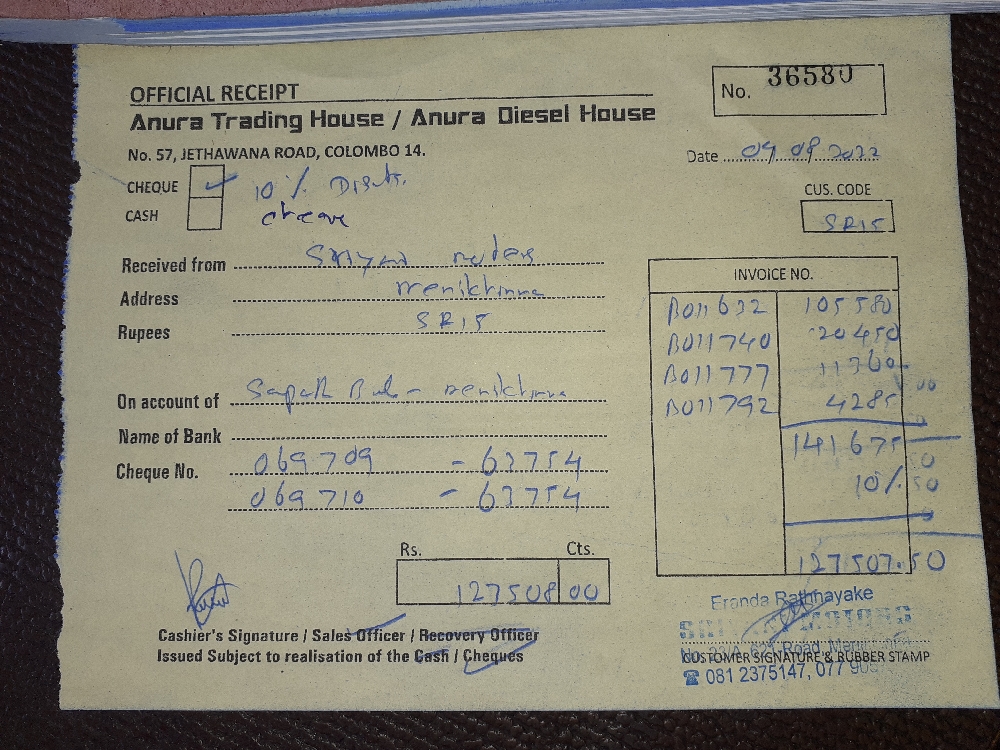 No. 36580
OFFICIAL RECEIPT
Anura Trading House / Anura Diesel House
No. 57, JETHAWANA ROAD, COLOMBO 14.
Date 09 09 2022
CHEQUE ✓ 10 %
CASH cheque
CUS. CODE
SR15
Received from
Address Menikhinna
Rupees SR15
INVOICE NO.
B011632 105580
B011740 20450
B011777 11360
B011792 4285
141675
10%
127507.50
On account of Sapath Menikhinna
Name of Bank
Cheque No. 069709 - 63754
069710 - 63754
Rs. Cts.
127508 00
Cashier's Signature / Sales Officer / Recovery Officer
Issued Subject to realisation of the Cash / Cheques
Eranda Rathnayake
MOTORS
Road,
CUSTOMER SIGNATURE & RUBBER STAMP
☎ 081 2375147, 077